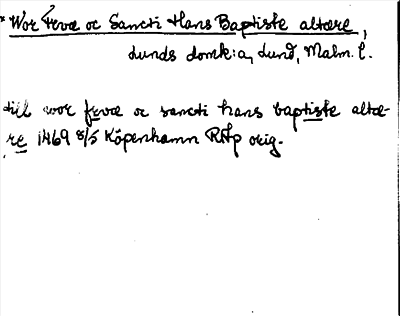 * Wor Frvæ oc Sancti Hans Baptiste altære,
Lunds domk:a, Lund, Malm. l.
till wor frvæ oc sancti hans baptiste altæ-
re 1469 8/5 Köpenhamn RAp orig.